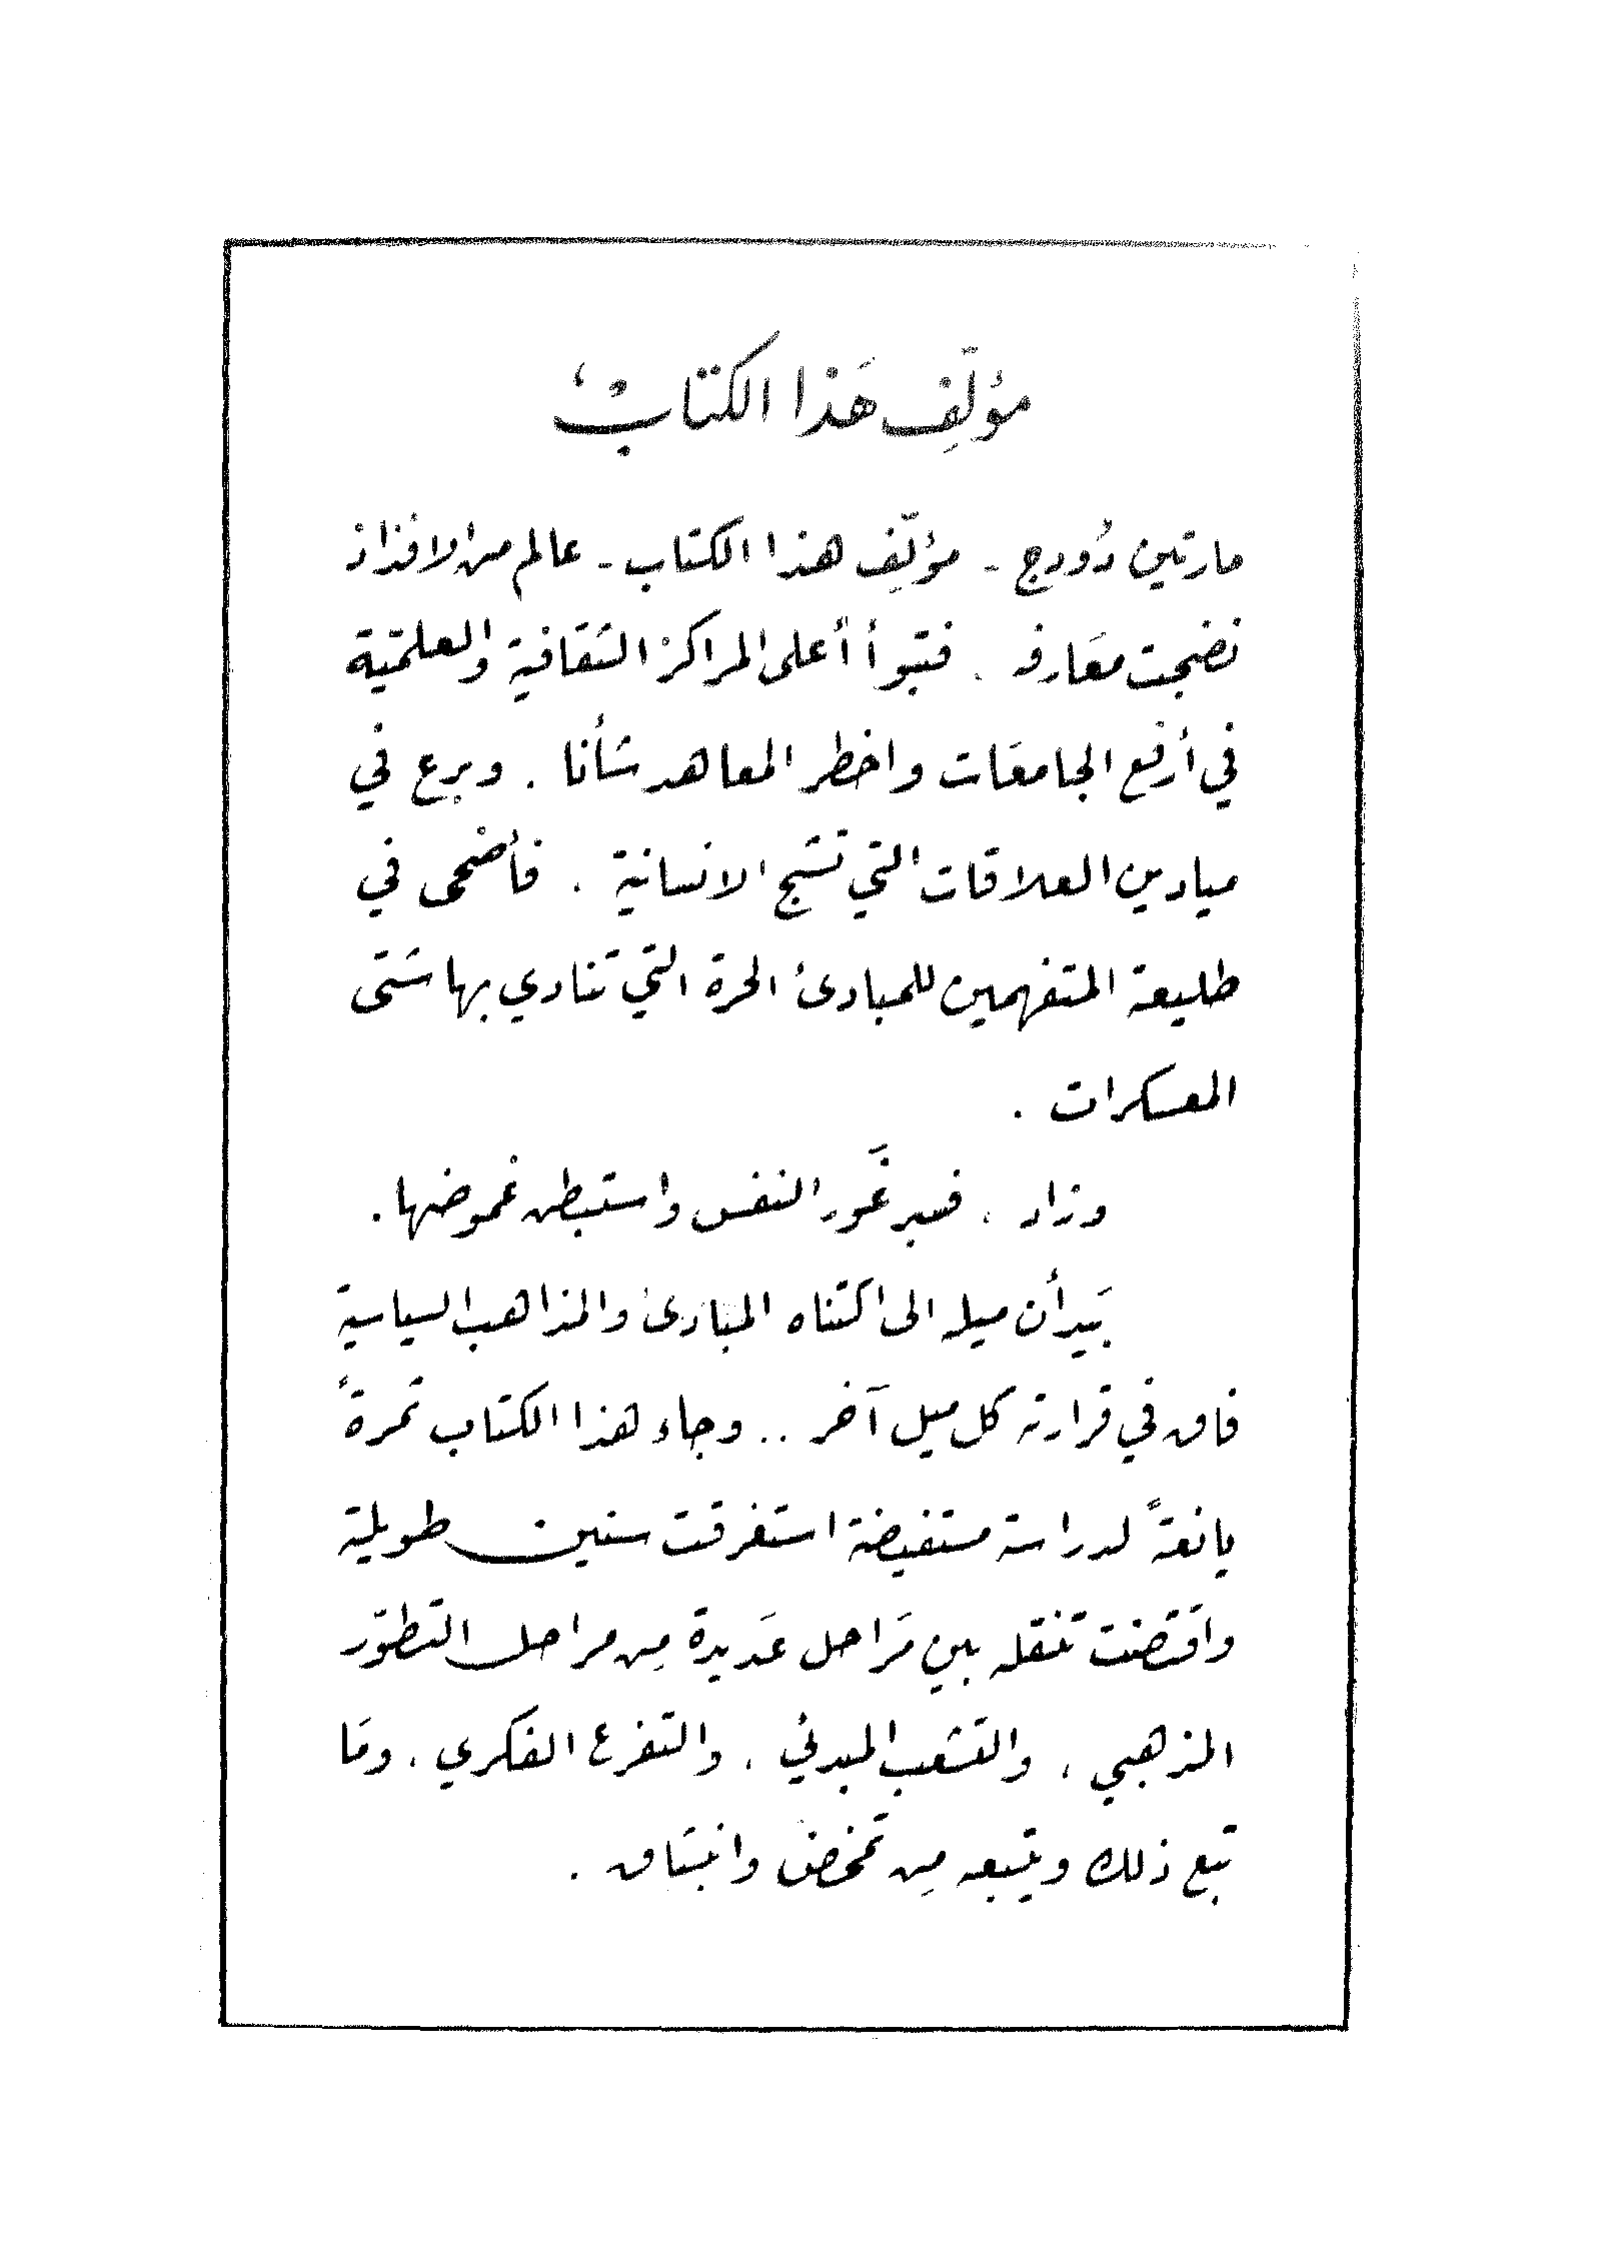 مؤلّف هَذا الكتابْ
مارتين دُودج - مؤلّف هذا الكتاب - عالم من الافذاذ
نضجت معَارفه . فتبوأ أعلى المراكز الثقافية والعلميّة
في أرفع الجامعَات واخطر المعاهد شأنا . وبرع في
ميادين العلاقات التي تشج الانسانية . فأضحى في
طليعة المتفهمين للمبادئ الحرة التي تنادي بها شتى
المعسكرات .
وزاد . فسبر غَور النفس واستبطن غموضها .
بَيد أن ميله الى اكتناه المبادئ والمذاهب السياسية
فاق في قرارته كل ميل آخر .. وجاء هذا الكتاب ثمرةً
يانعةً لدراسة مستفيضة استغرقت سنين طويلة
واقتضت تنقله بين مَراحل عَديدة مِن مراحل التطوّر
المذهبي ، والتشعب المبدئي ، والتفرع الفكري ، ومَا
تبع ذلك ويتبعه مِن تمخض وانبثاق .